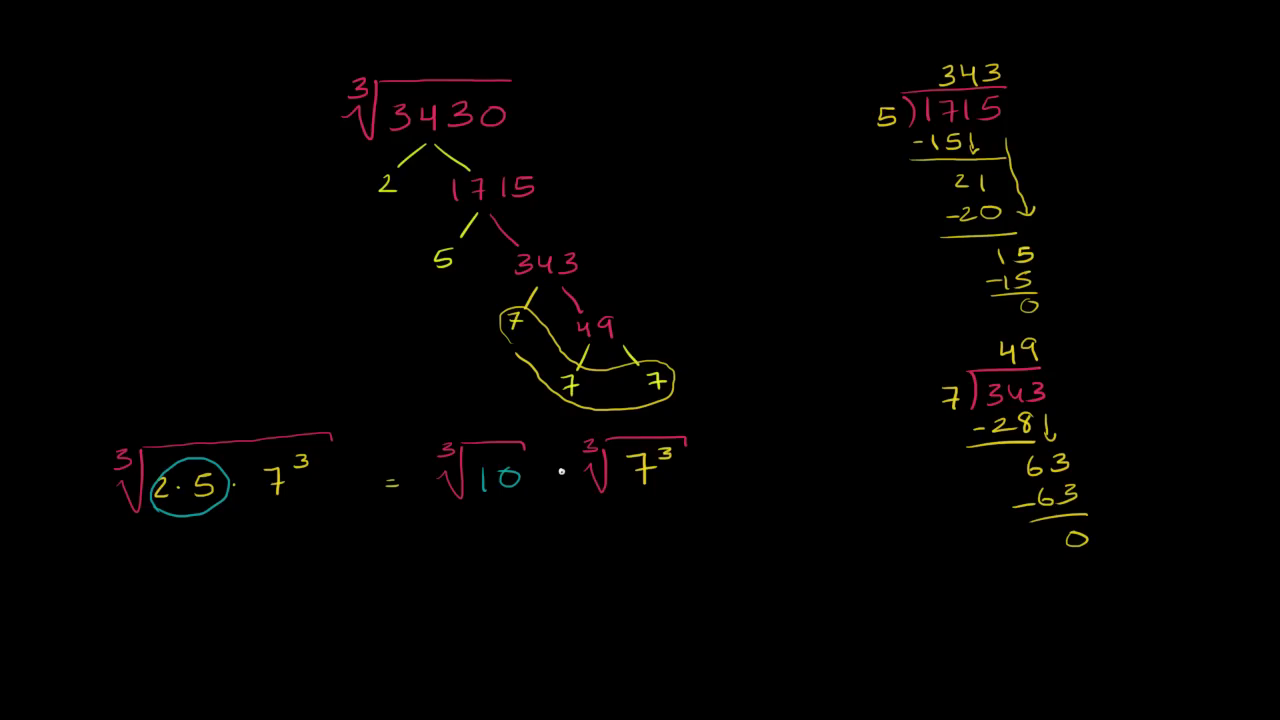 ∛3430
2 1715
5 343
7 49
7 7
∛(2·5·7³) = ∛10 · ∛(7³)
343
5)1715
-15
21
-20
15
-15
0
49
7)343
-28
63
-63
0